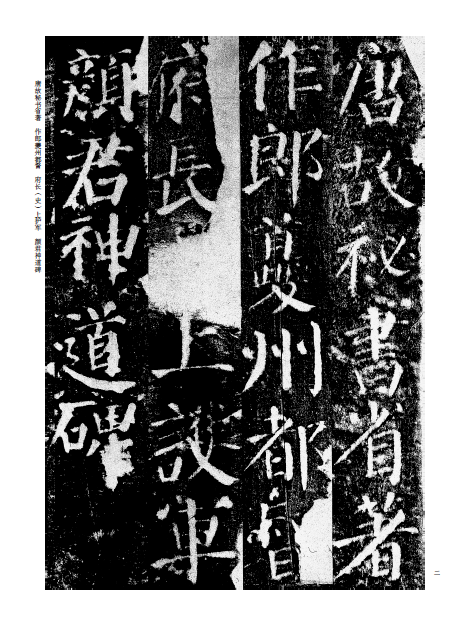 唐故秘書省著
作郎夔州都督
府長 上護軍
顏君神道碑
唐故秘书省著 作郎夔州都督 府长（史）上护军 颜君神道碑
二